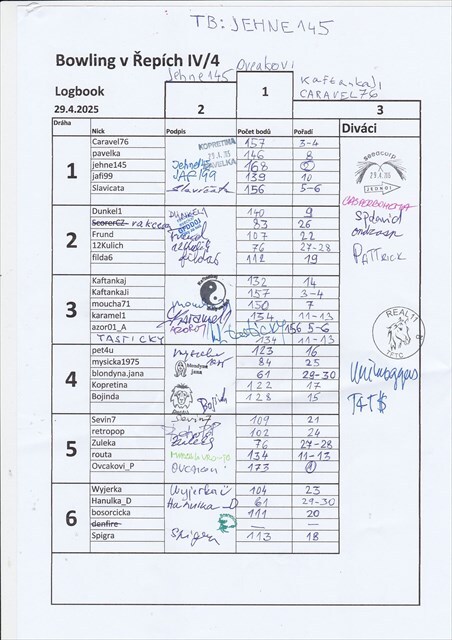 TB: JEHNE145
Bowling v Řepích IV/4
Jehne145 Ovcakovi
KaftankaJi
CARAVEL76
Logbook
1
29.4.2025 2 3
Dráha Nick Podpis Počet bodů Pořadí Diváci
1
Caravel76 157 3-4
pavelka 146 8
jehne145 Jehne145 168 2
jafi99 JAFI99 139 10
Slavicata Slavicata 156 5-6
2
Dunkel1 DUNKEL1 140 9
ScorerCZ rakce 83 26
Frund Frund 107 22
12Kulich 76 27-28
filda6 filda6 112 19
3
Kaftankaj 132 14
KaftankaJi 157 3-4
moucha71 150 7
karamel1 Karamel1 134 11-13
azor01_A AZOR01 156 5-6
TASTICKY 134 11-13
4
pet4u 123 16
mysicka1975 84 25
blondyna.jana blondyna.jana 61 29-30
Kopretina 122 17
Bojinda Bojinda 128 15
5
Sevin7 Sevin7 109 21
retropop 102 24
Zuleka Zuleka 76 27-28
routa 134 11-13
Ovcakovi_P Ovcakovi 173 1
6
Wyjerka Wyjerka 104 23
Hanulka_D Hanulka_D 61 29-30
bosorcicka 111 20
danfire — —
Spigra Spigra 113 18
KOPRETINA
PAVELKA
29.4.25
REALIT
TETC
T4T$